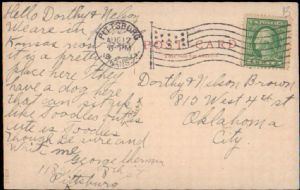 Hello Dorthy & Nelson
We are in
Kansas now
it is a pretty
place here they
have a dog here
that can sit up
like Goodies
cute is Goodies
be sure and
write me
George
118 8th St
Pittsburg
PITTSBURG
AUG 17
POST CARD
Dorthy Nelson Brown
813 West 4th St
Oklahoma
City.